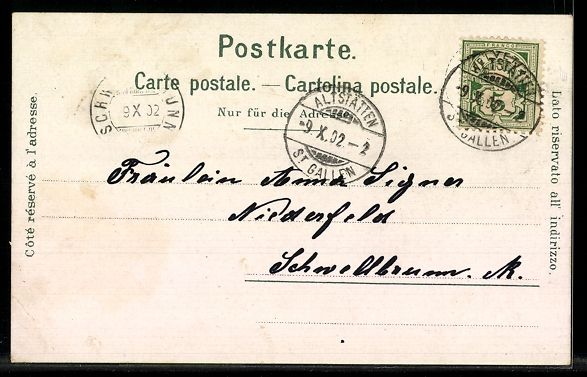 Postkarte.
Carte postale. — Cartolina postale.
Nur für die Adresse
FRANCO
5
ALTSTÄTTEN
-9.X.02.-
ST. GALLEN
ALTSTÄTTEN
-9.X.02.-2
ST. GALLEN
9 X 02
Côté réservé à l'adresse.
Lato riservato all' indirizzo.
Fräulein Anna Signer
Niederfeld
Schwellbrunn.